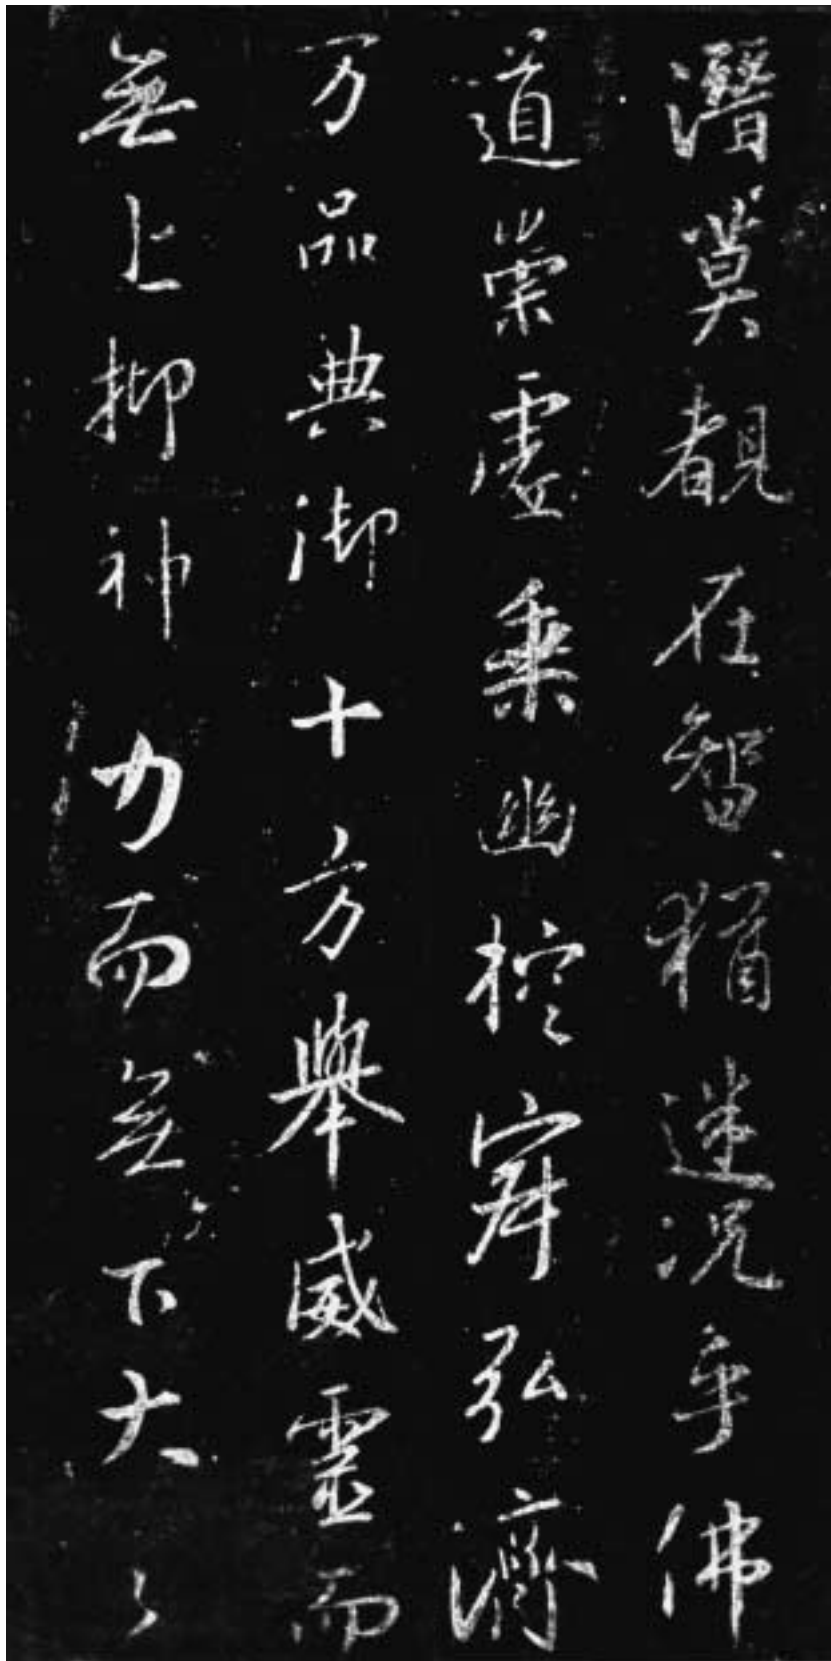 潛莫覩在智猶迷況乎佛
道崇虛乘幽控寂弘濟
万品典御十方舉威靈而
無上抑神力而無下大之